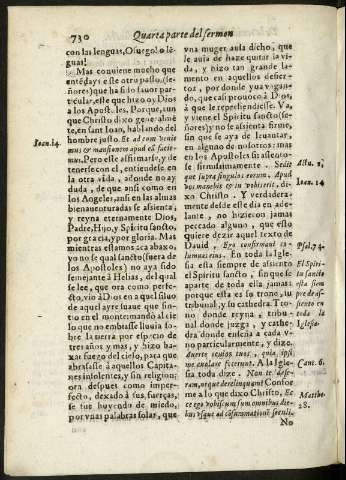 730 Quarta parte del sermon
con las lenguas, O fuego! o lē
guas!
Mas conuiene mucho que
entēdays este otro passo, (se-
ñores) que ha sido fauor par-
ticular, este que hizo oy Dios
a los Apost. les, Porque, aun
que Christo dixo generalmē
te, en sant Ioan, hablando del
hombre justo. Et ad eum venie
mus & mansionem apud eū facie-
mus. Pero este affirmarse, y de
tenerse con el, entiendese en
la otra vida, adonde no ay
duda, de que ansi como en
los Angeles, ansi en las almas
bienauenturadas se assienta,
y reyna eternamente Dios,
Padre, Hijo, y Spiritu sancto,
por gracia, y por gloria. Mas
mientras estamos aca abaxo,
yo no se qual sancto (fuera de
los Apostoles) no aya sido
semejante à Helias, del qual
se lee, que ora como perfe-
cto, vio à Dios en aquel siluo
de aquel ayre suaue que sin-
tio en el monte: mandò al cie
lo que no embiasse lluuia so-
bre la tierra por espacio de
tres años y mas, y hizo ba-
xar fuego del cielo, para que
abrasasse à aquellos Capita-
nes insolentes, y sin religion;
ora despues como imper-
fecto, dexado à sus fuerças,
se fue huyendo de miedo,
por vnas palabras solas, que
Ioan. 14.
vna muger auia dicho, que
le auia de hazer quitar la vi-
da, y hizo tan grande la-
mento en aquellos desier-
tos, por donde yua vagan-
do, que casi prouocò à Dios,
à que le reprehendiesse. Ya,
y viene el Spiritu sancto (se-
ñores) y no se assienta firme,
sin que se aya de leuantar,
en alguno de nosotros: mas
en los Apostoles si: assento-
se firmissimamente. Sedit
que supra singulos eorum. Apud
vos manebit & in vobis erit, di-
xo Christo. Y verdadera-
mente desde este dia en ade-
lante, no hizieron jamas
peccado alguno, que esto
quiere dezir aquel texto de
Dauid. Ego confirmaui co-
lumnas eius. En toda la Igle-
sia esta siempre de assiento
el Spiritu sancto, sin que se
aparte de toda ella jamas:
porque esta es su trono, su
tribunal, y su cathedra. Tro-
no donde reyna, tribu-
nal donde juzga, y cathe-
dra donde enseña a cada v-
no particularmente, y dize.
Auerte oculos tuos, quia, ipsi
me auolare fecerunt. A la Igle-
sia toda dize. Non te dese-
ram, neque derelinquam? Confor
me a lo que dixo Christo, Ec
ce ego vobiscum sum omnibus die-
bus vsque ad cōsummationē seculi.
No
Actu. 2,
Ioan. 14
Psal. 74.
El Spiri-
tu sancto
esta siem
pre de as-
siento en
toda la
Iglesia.
Cant. 6.
Matthe.
28.